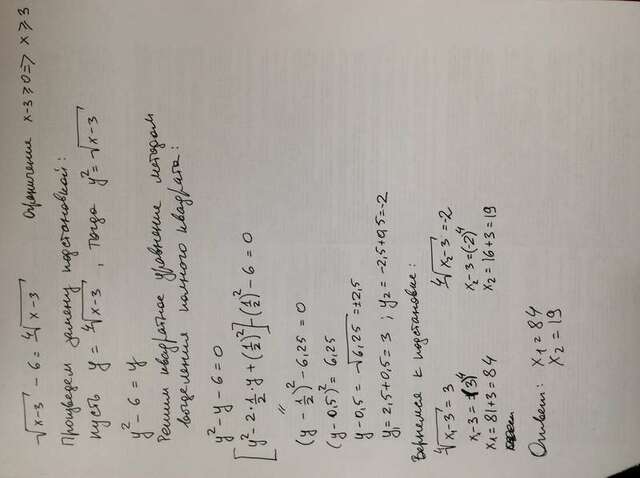 √(x-3) - 6 = ⁴√(x-3) Ограничение x-3≥0 => x≥3
Произведем замену подстановкой:
пусть y = ⁴√(x-3), тогда y² = √(x-3)
y² - 6 = y
Решим квадратное уравнение методом
выделения полного квадрата:
y² - y - 6 = 0
[y² - 2·1/2·y + (1/2)²] - (1/2)² - 6 = 0
(y - 1/2)² - 6,25 = 0
(y - 0,5)² = 6,25
y - 0,5 = √6,25 = ±2,5
y₁ = 2,5 + 0,5 = 3 ; y₂ = -2,5 + 0,5 = -2
Вернемся к подстановке:
⁴√(x₁-3) = 3 ⁴√(x₂-3) = -2
x₁-3 = (3)⁴ x₂-3 = (-2)⁴
x₁ = 81+3 = 84 x₂ = 16+3 = 19
Ответ: x₁ = 84
x₂ = 19